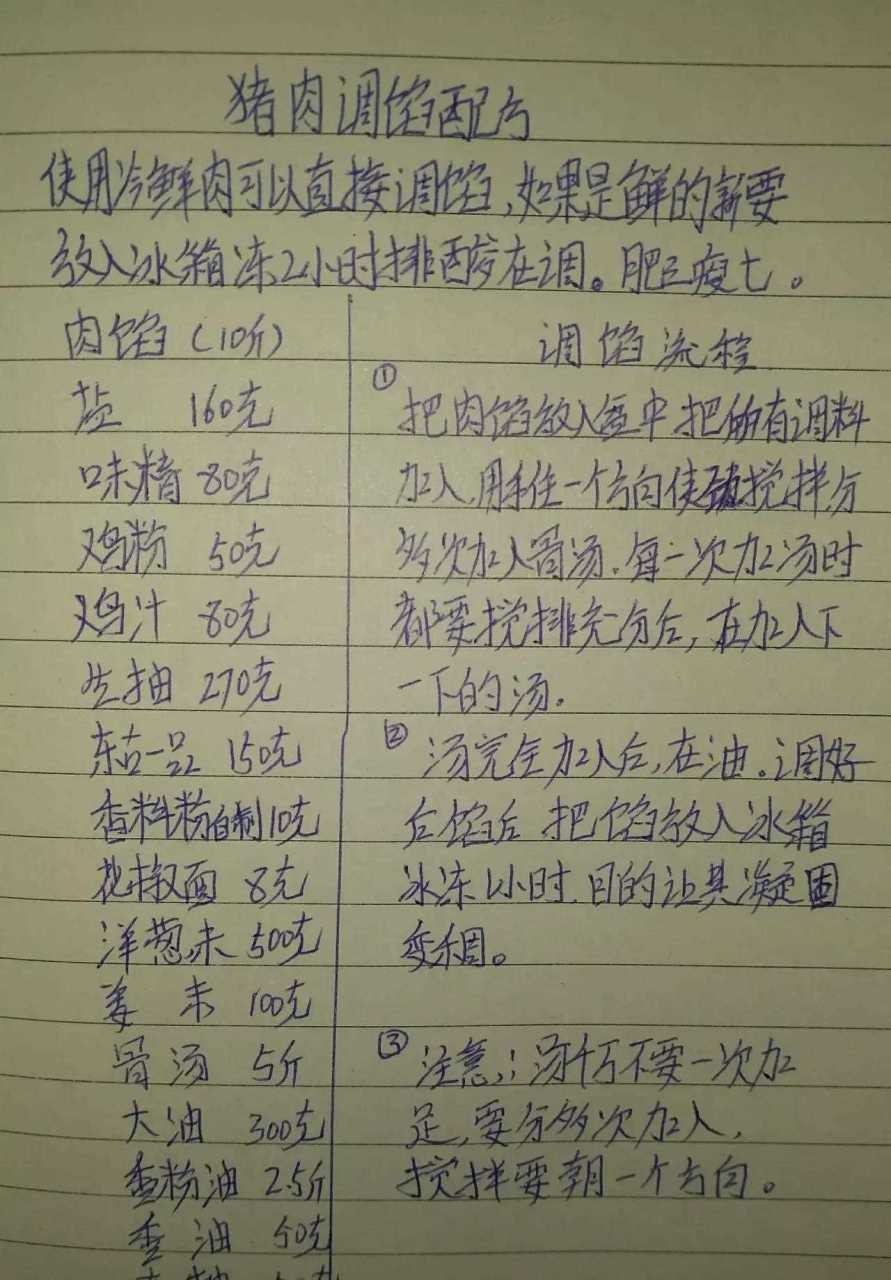 猪肉调馅配方
使用冷鲜肉可以直接调馅,如果是鲜的新要
放入冰箱冻2小时排酸在调。肥三瘦七。
肉馅(10斤)
盐 160克
味精 80克
鸡粉 50克
鸡汁 80克
生抽 270克
东古一品 150克
香料粉自制10克
花椒面 8克
洋葱末 500克
姜末 100克
骨汤 5斤
大油 300克
香粉油 2.5斤
香油 50克
调馅流程
① 把肉馅放入盔中把所有调料
加入,用手往一个方向使劲搅拌分
多次加入骨汤.每一次加汤时
都要搅排充分后,在加入下
一下的汤.
② 汤完全加入后,在油。调好
后馅后 把馅放入冰箱
冰冻1小时.目的让其凝固
变稠。
③ 注意;汤千万不要一次加
足,要分多次加入,
搅拌要朝一个方向。